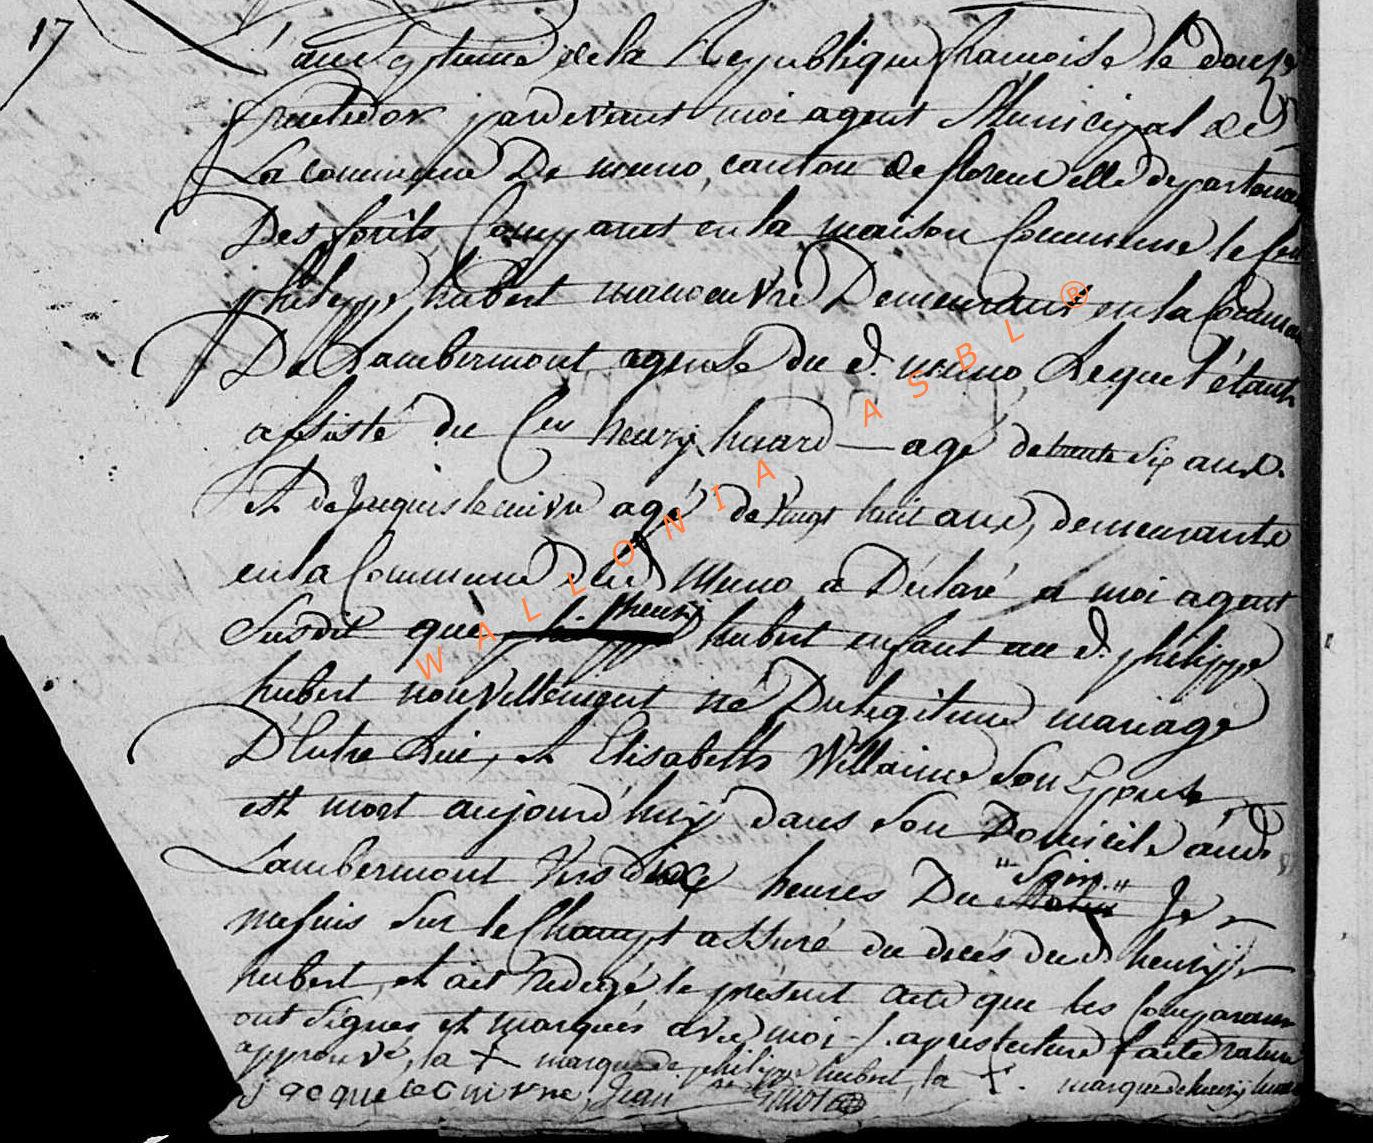 17
L'an septieme de la Republique francoise le douze
fructidor pardevant moi agent Municipal de
La commune De muno, canton de florenville departemen
Des forêts Comparut en la maison Commune le Cen
philippe hubert manoeuvre Demeurant en la Commune
De Lambermont agense du d. muno, Lequel étant
assisté du Cen henry huard agé de trente six ans.
et de Jacques lecuivre agé de vingt huit ans, demeurants
en la Commune dud Muno a Déclaré a moi agent
susdit que henry hubert enfant au d. philippe
hubert nouvellement né Du legitime mariage
D'Entre Lui, et Elisabeth Willaime son Epouse,
est mort aujourd'huy dans son Domicile aud
Lambermont vers dix heures Du "Soir" Je
me suis sur le Champt assuré du decés dud henry
hubert, et ait redegé le présent acte que les Comparans
ont signés et marqués avec moi apres lecture faite rature
approuvé, la + marque de philippe hubert, la + marque de henry huard
Jacque lecuivre, Jean
WALLONIA ASBL ®